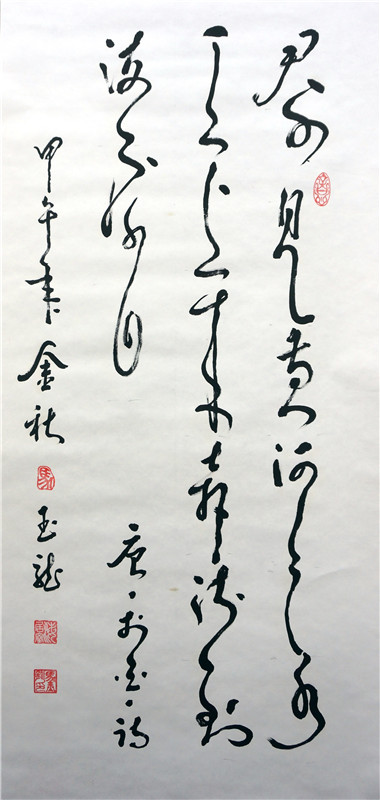 君不見黄河之水
天上来奔流到
海不復回
唐李白詩
甲午年金秋
玉龍